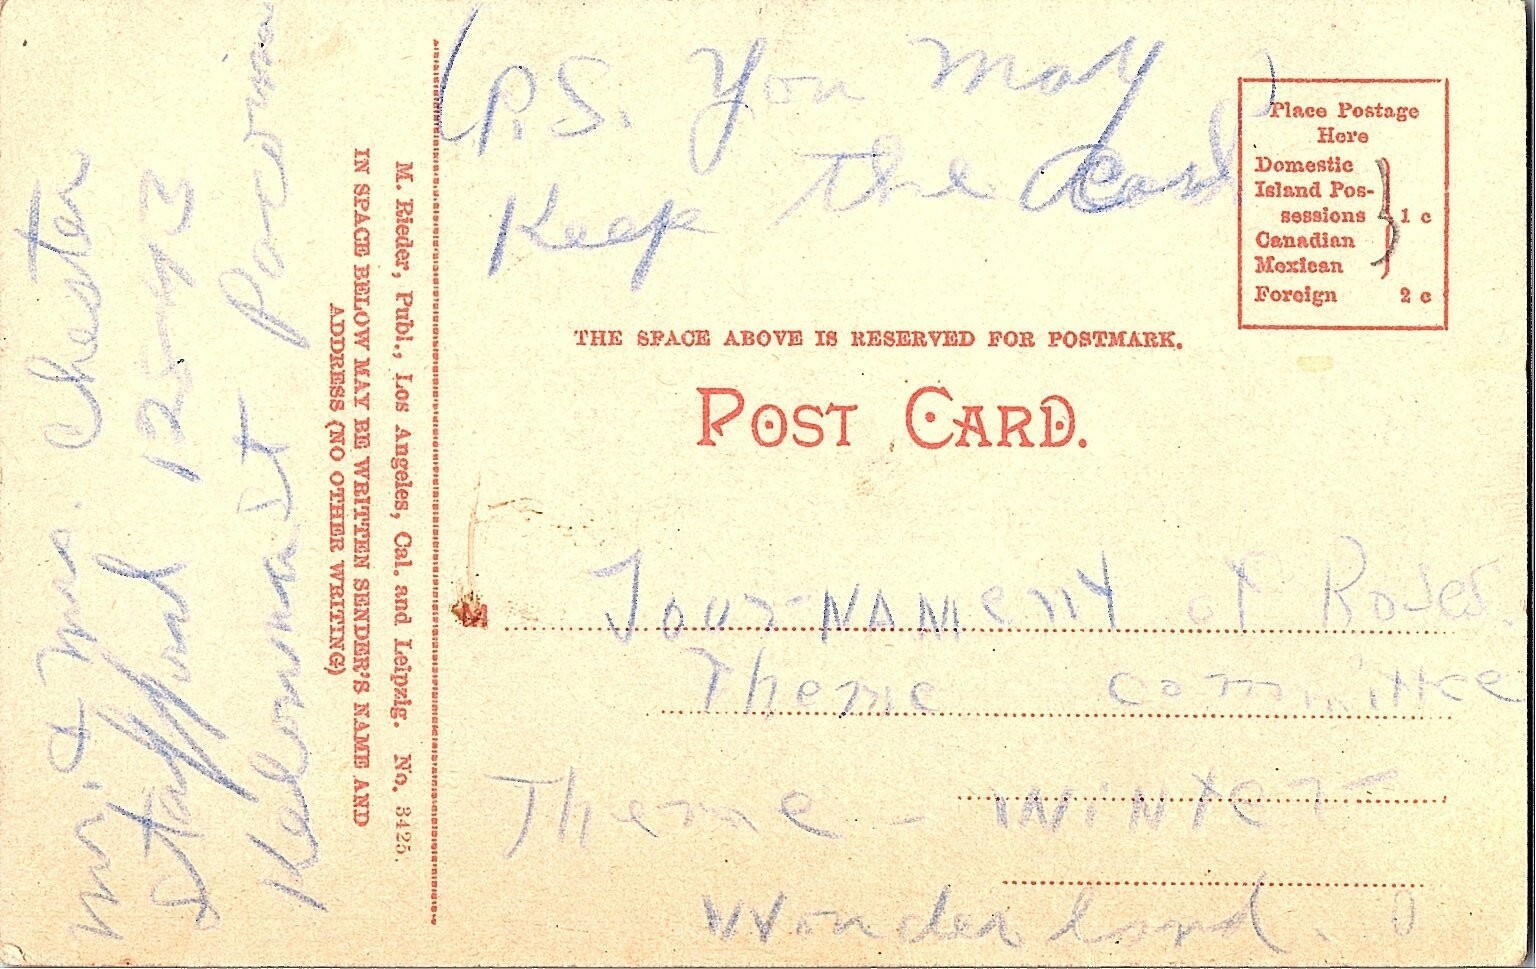 Mr. & Mrs. Chester
Stafford 12543
Kelowna St Pacoima
IN SPACE BELOW MAY BE WRITTEN SENDER'S NAME AND
ADDRESS (NO OTHER WRITING)
M. Rieder, Publ., Los Angeles, Cal. and Leipzig. No. 3425.
(P.S. You may)
Keep the Card
Place Postage
Here
Domestic
Island Pos-
sessions
Canadian
Mexican
1 c
Foreign 2 c
THE SPACE ABOVE IS RESERVED FOR POSTMARK.
POST CARD.
M
TourNAMenT of Roses.
Theme committee
Theme - WiNter
Wonderland.